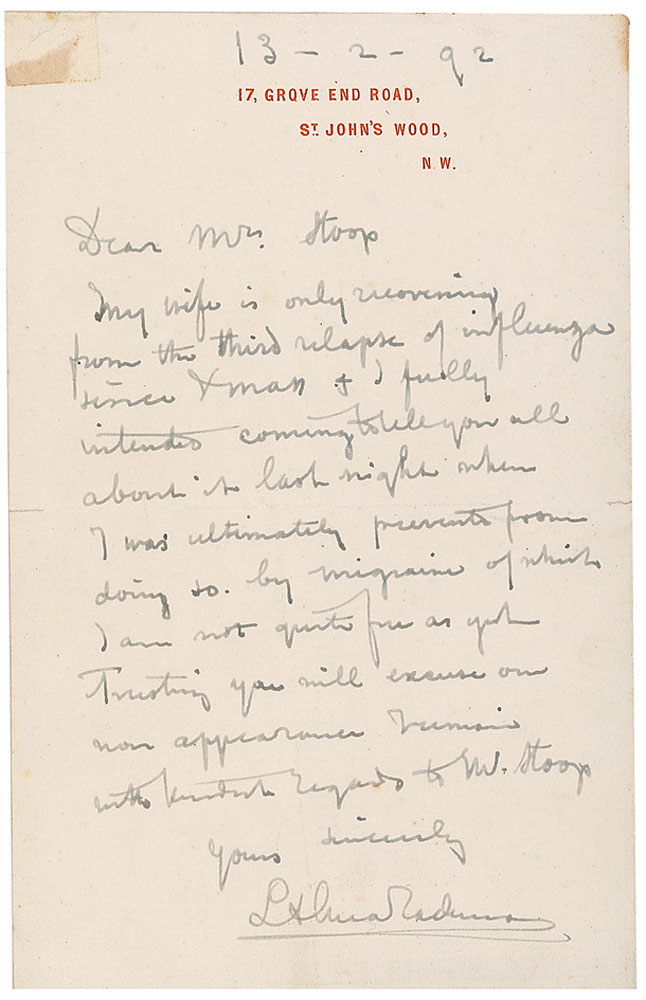 13 - 2 - 92
17, GROVE END ROAD,
ST. JOHN'S WOOD,
N.W.
Dear Mrs. Stoop
My wife is only recovering
from the third relapse of influenza
since Xmass & I fully
intended coming to tell you all
about it last night when
I was ultimately prevented from
doing so. by migraine of which
I am not quite free as yet
Trusting you will excuse our
non appearance I remain
with kindest regards to Mr. Stoop
Yours sincerely
L Alma Tadema